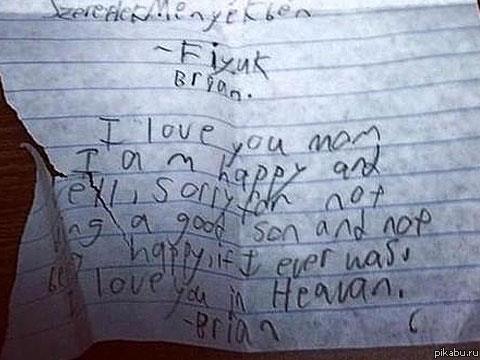 SzereTlekMenyekben
~Fiyuk
Brian.
I love you mom
I am happy and
ell, sorry for not
ing a good son and not
happy, if I ever was.
I love you in Heavan.
-Brian
pikabu.ru